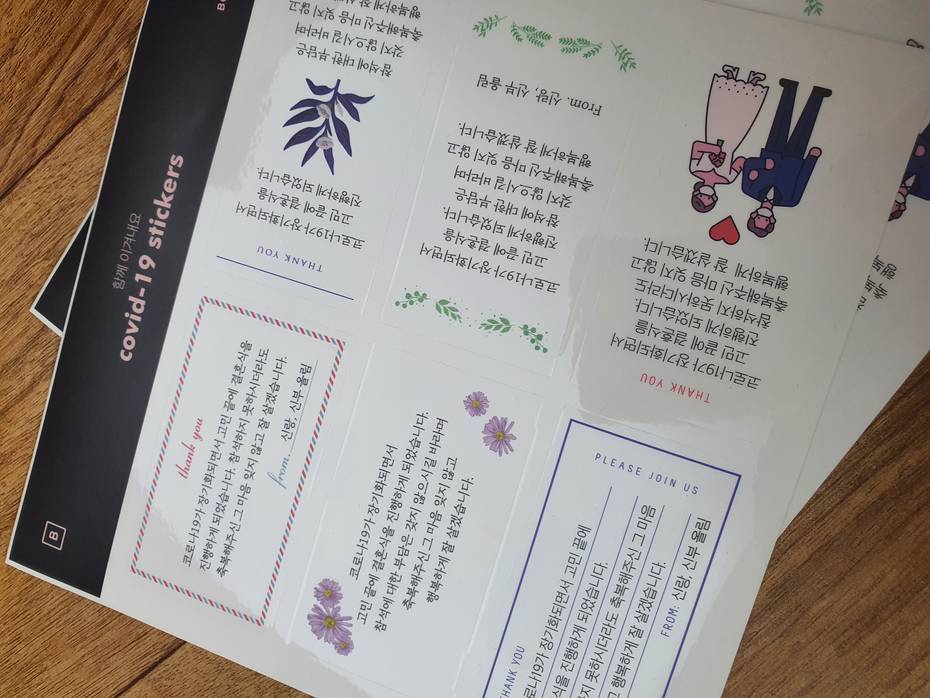 함께 이겨내요
covid-19 stickers
B
축복해주신 마음 잊지 않고
갖지 않으시길 바라며
참석에 대한 부담은
진행하게 되었습니다.
고민 끝에 결혼식을
코로나19가 장기화되면서
THANK YOU
코로나19가 장기화되면서
고민 끝에 결혼식을
진행하게 되었습니다.
참석에 대한 부담은
갖지 않으시길 바라며
축복해주신 마음 잊지 않고
행복하게 잘 살겠습니다.
From. 신랑, 신부 올림
THANK YOU
코로나19가 장기화되면서
고민 끝에 결혼식을
진행하게 되었습니다.
참석하지 못하시더라도
축복해주신 마음 잊지 않고
행복하게 잘 살겠습니다.
thank you
코로나19가 장기화되면서 고민 끝에 결혼식을
진행하게 되었습니다. 참석하지 못하시더라도
축복해주신 그 마음 잊지 않고 잘 살겠습니다.
from. 신랑, 신부 올림
코로나19가 장기화되면서
고민 끝에 결혼식을 진행하게 되었습니다.
참석에 대한 부담은 갖지 않으시길 바라며
축복해주신 그 마음 잊지 않고
행복하게 잘 살겠습니다.
PLEASE JOIN US
THANK YOU
장기화되면서 고민 끝에
진행하게 되었습니다.
못하시더라도 축복해주신 그 마음
행복하게 잘 살겠습니다.
FROM: 신랑, 신부 올림